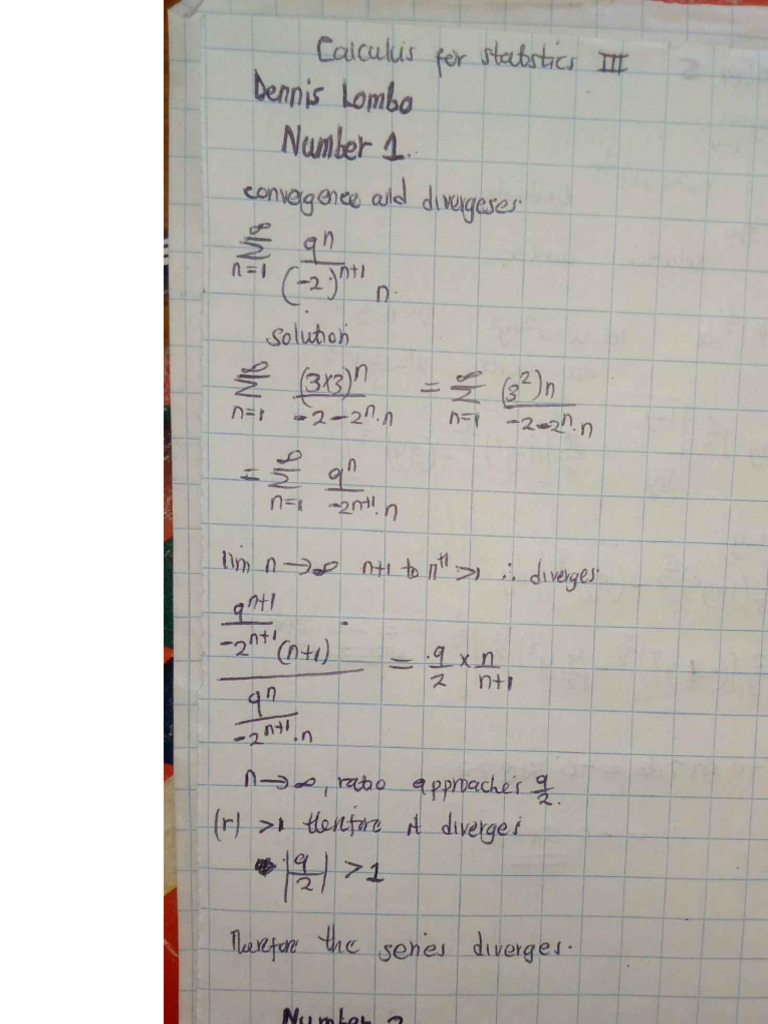 Calculus for statistics III
Dennis Lombo
Number 1.
convergence and divergeses.
∞ Σ n=1 9^n / (-2)^{n+1} n.
solution
∞ Σ n=1 (3×3)^n / -2-2^n.n = ∞ Σ n=1 (3^2)n / -2-2^n.n
= ∞ Σ n=1 9^n / -2^{n+1}.n
lim n→∞ n+1 to n^{th} >1 ∴ diverges.
9^{n+1} / -2^{n+1} (n+1) / 9^n / -2^{n+1}.n = 9/2 × n/n+1
n→∞, ratio approaches 9/2.
(r) >1 therefore it diverges
|9/2| >1
Therefore the series diverges.
Number